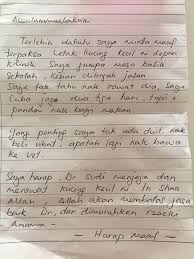 Assalamualaikum.
Terlebih dahulu saya minta maaf
terpaksa letak kucing kecil ni depan
klinik. Saya jumpa masa balik
sekolah, kesian ditengah jalan
Saya tak tahu nak rawat dia, saya
cuba jaga dua tiga hari, tapi x
pandai nak bagi makan
Yang penting saya tak ada duit nak
beli ubat, apatah lagi nak bawa
ke vet.
Saya harap, Dr sudi menjaga dan
merawat kucing kecil ni. In Shaa
Allah, Allah akan membalas jasa
baik Dr, dan dimurahkan rezeki
Aamiinn -
- Harap Maaf -